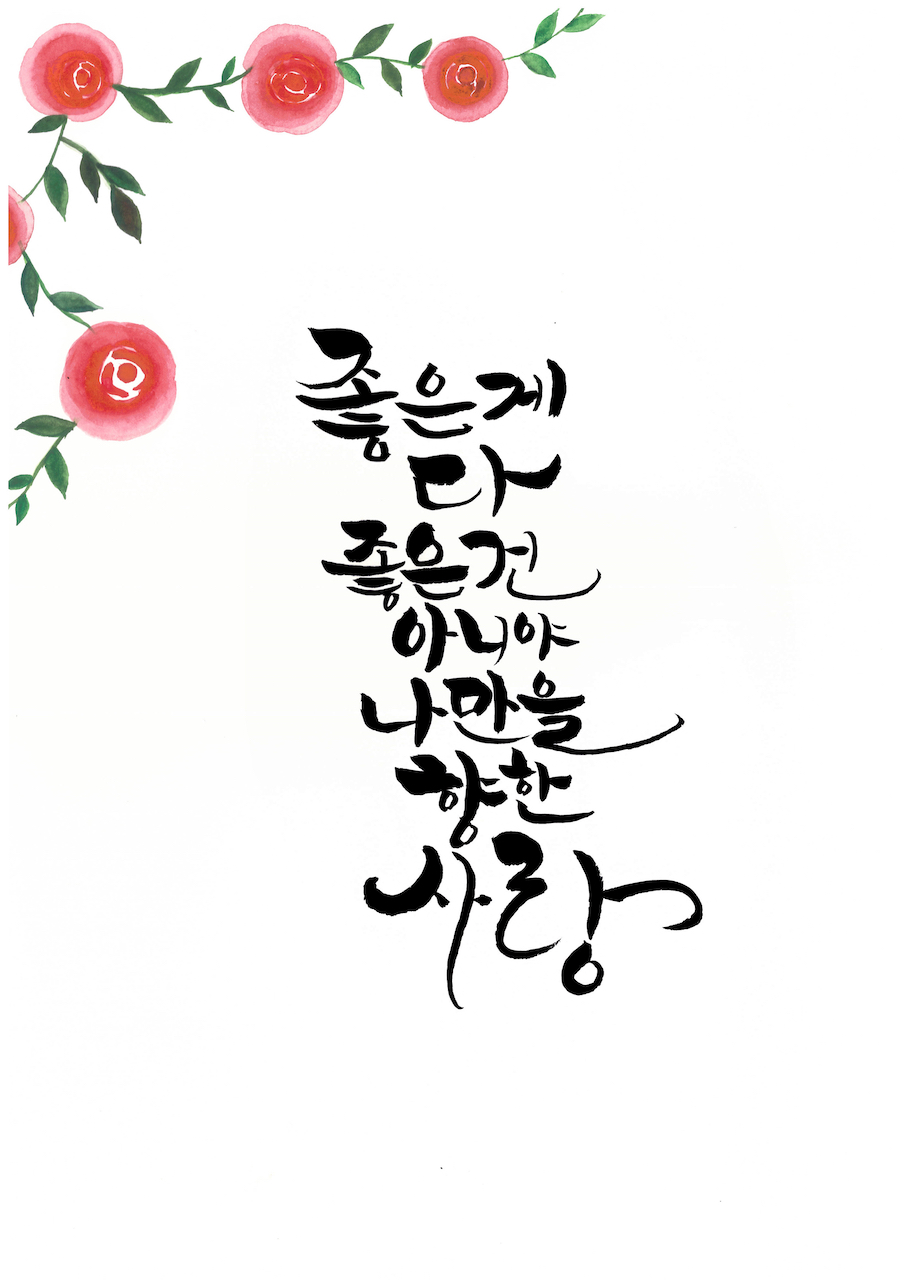 좋은게
다
좋은건
아니야
나만을
향한
사랑